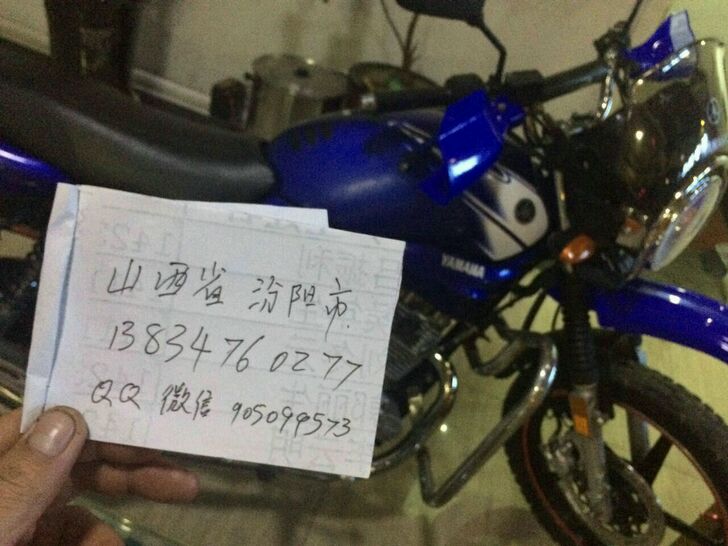 山西省 汾阳市.
13834760277
QQ 微信 905099573
YAMAHA